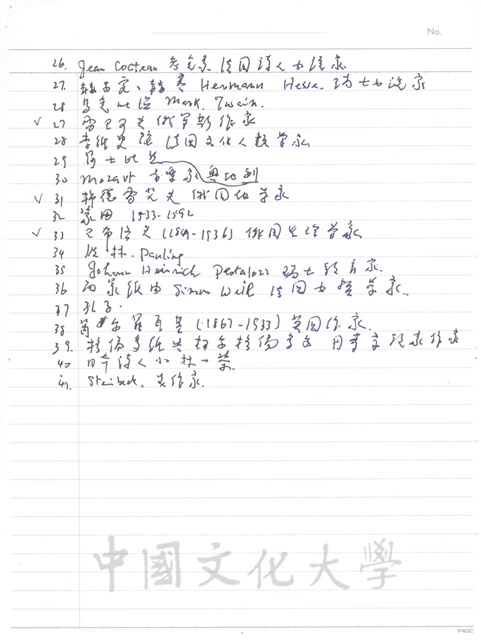 No.
26. Jean Cocteau 考克多 法國詩人小說家
27. 赫曼 赫塞 Hermann Hesse. 瑞士小說家
28 馬克吐溫 Mark. Twain.
✓ 27 俄羅斯作家
28 李維史陀 法國文化人類學家
29 莎士比亞
30 Mozart 音樂家 奧地利
✓ 31 俄國化學家
32 蒙田 1533-1592
✓ 33 巴布洛夫 (1849-1936) 俄國生理學家
34 波林. Pauling
35 Johann Heinrich Pestalozzi 瑞士教育家.
36 西蒙 Simon Weil 法國女哲學家.
37 孔子.
38 高爾斯華 (1867-1933) 英國作家.
39. 作家
40 日本詩人 小林一茶.
41. Steinbeck. 美作家.
中國文化大學